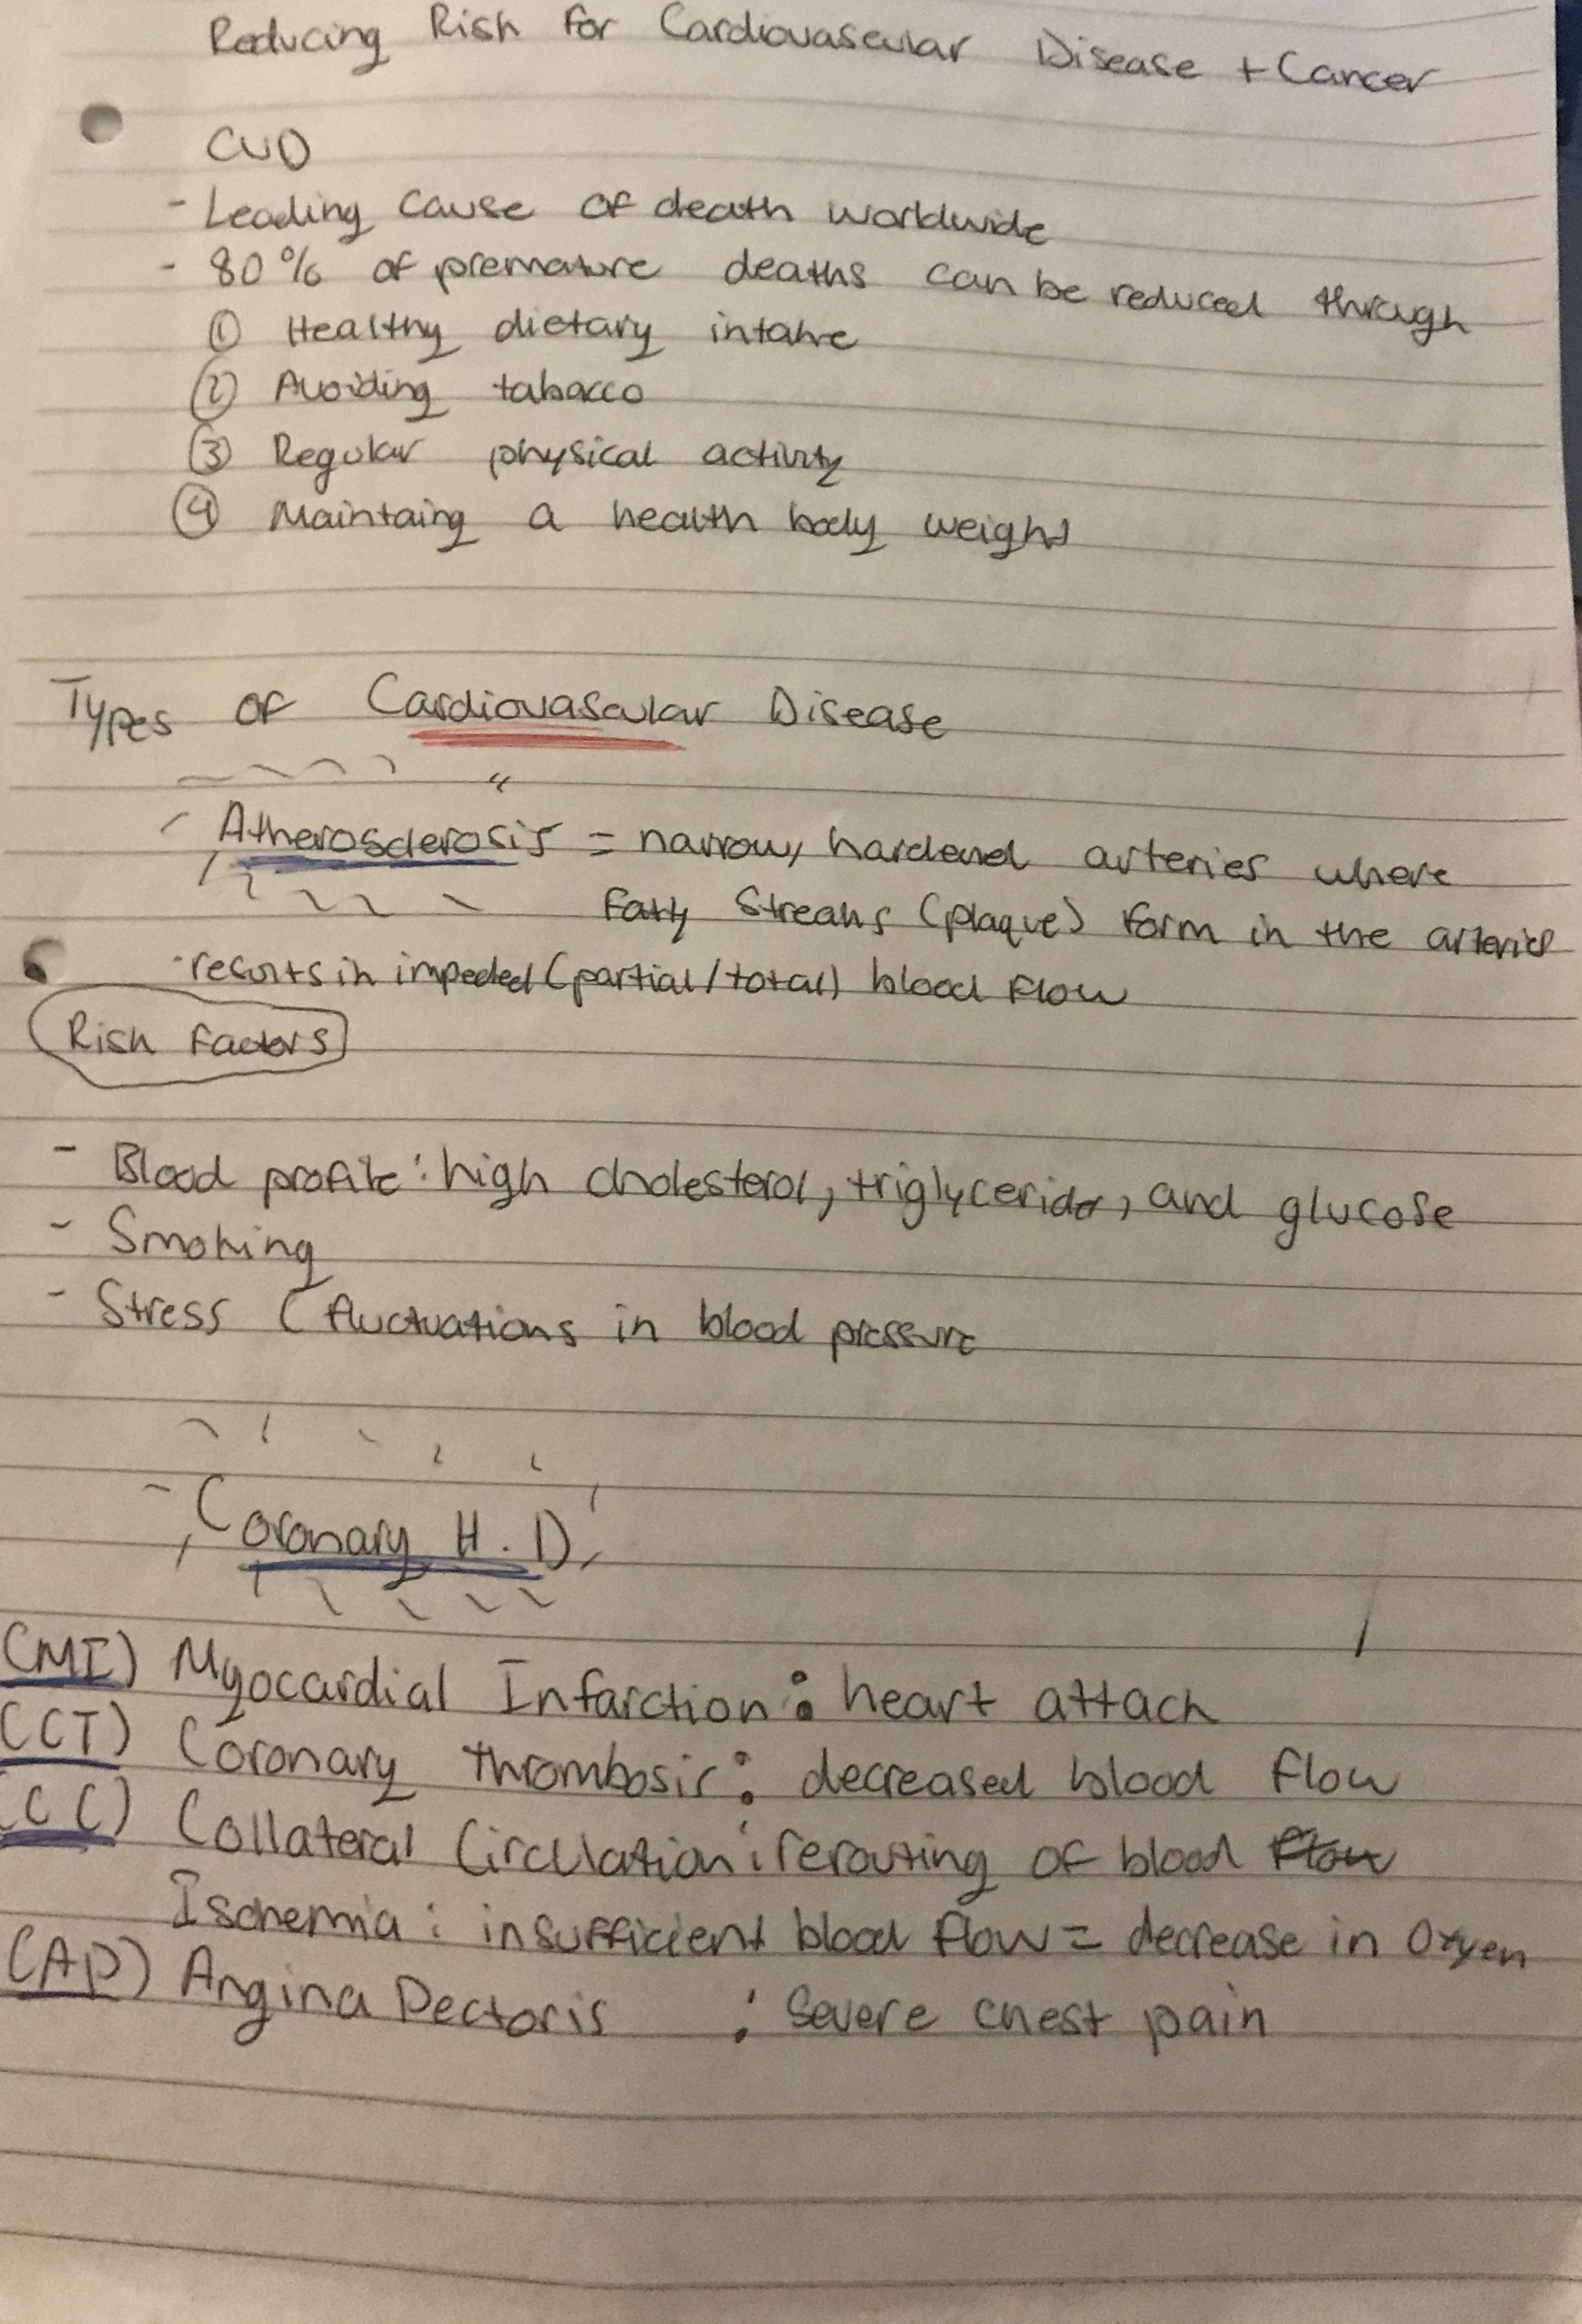 Reducing Risk for Cardiovascular Disease + Cancer
CVD
- Leading cause of death worldwide
- 80% of premature deaths can be reduced through
① Healthy dietary intake
② Avoiding tabacco
③ Regular physical activity
④ Maintaing a health body weight
Types of Cardiovascular Disease
Atherosclerosis = narrow, hardened arteries where
fatty streaks (plaque) form in the arteries
· results in impeded (partial/total) blood flow
Risk factors
- Blood profile: high cholesterol, triglyceride, and glucose
- Smoking
- Stress (fluctuations in blood pressure
Coronary H.D
(MI) Myocardial Infarction: heart attack
(CT) Coronary thrombosis: decreased blood flow
(CC) Collateral Circulation: rerouting of blood flow
Ischemia: insufficient blood flow = decrease in Oxyen
(AP) Angina Pectoris : severe chest pain